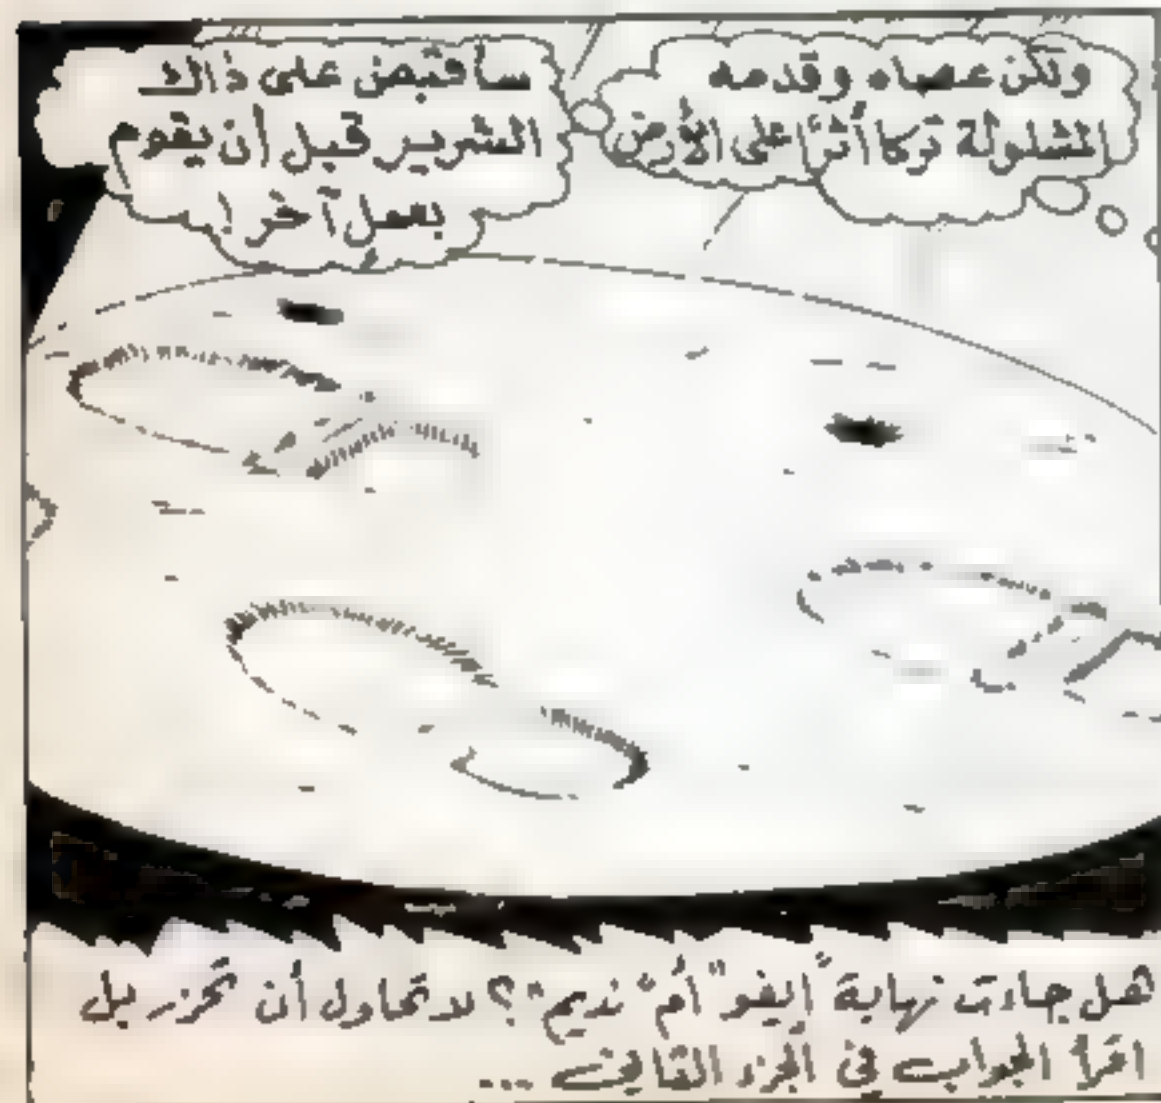 ولكن عصاه وقدمه
المشلولة تركا أثرًا على الأرض
سأقبض على ذاك
الشرير قبل أن يقوم
بعمل آخر!
هل جاءت نهاية "إيفو" أم "نديم"؟ لا تحاول أن تحزر بل
اقرأ الجواب في الجزء الثاني ...